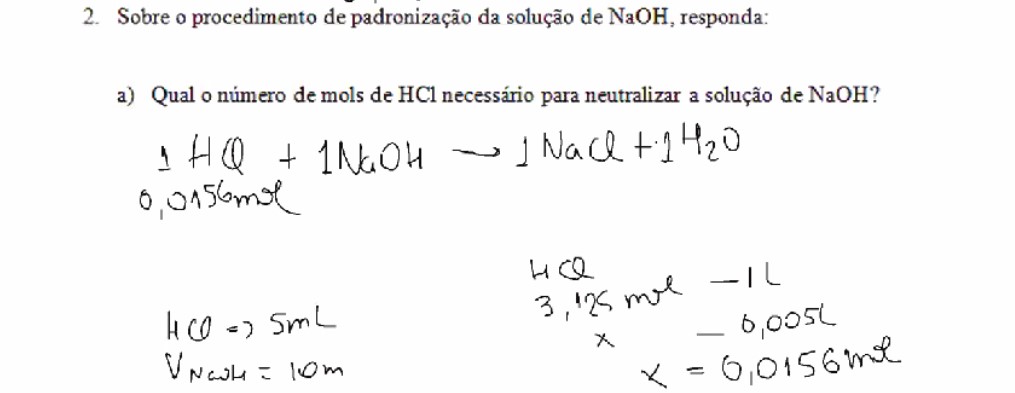 2. Sobre o procedimento de padronização da solução de NaOH, responda:
a) Qual o número de mols de HCl necessário para neutralizar a solução de NaOH?
1 HCl + 1NaOH → 1 NaCl + 1H₂O
0,0156mol
HCl
3,125 mol — 1L
x — 0,005L
x = 0,0156mol
HCl => 5mL
V NaOH = 10m